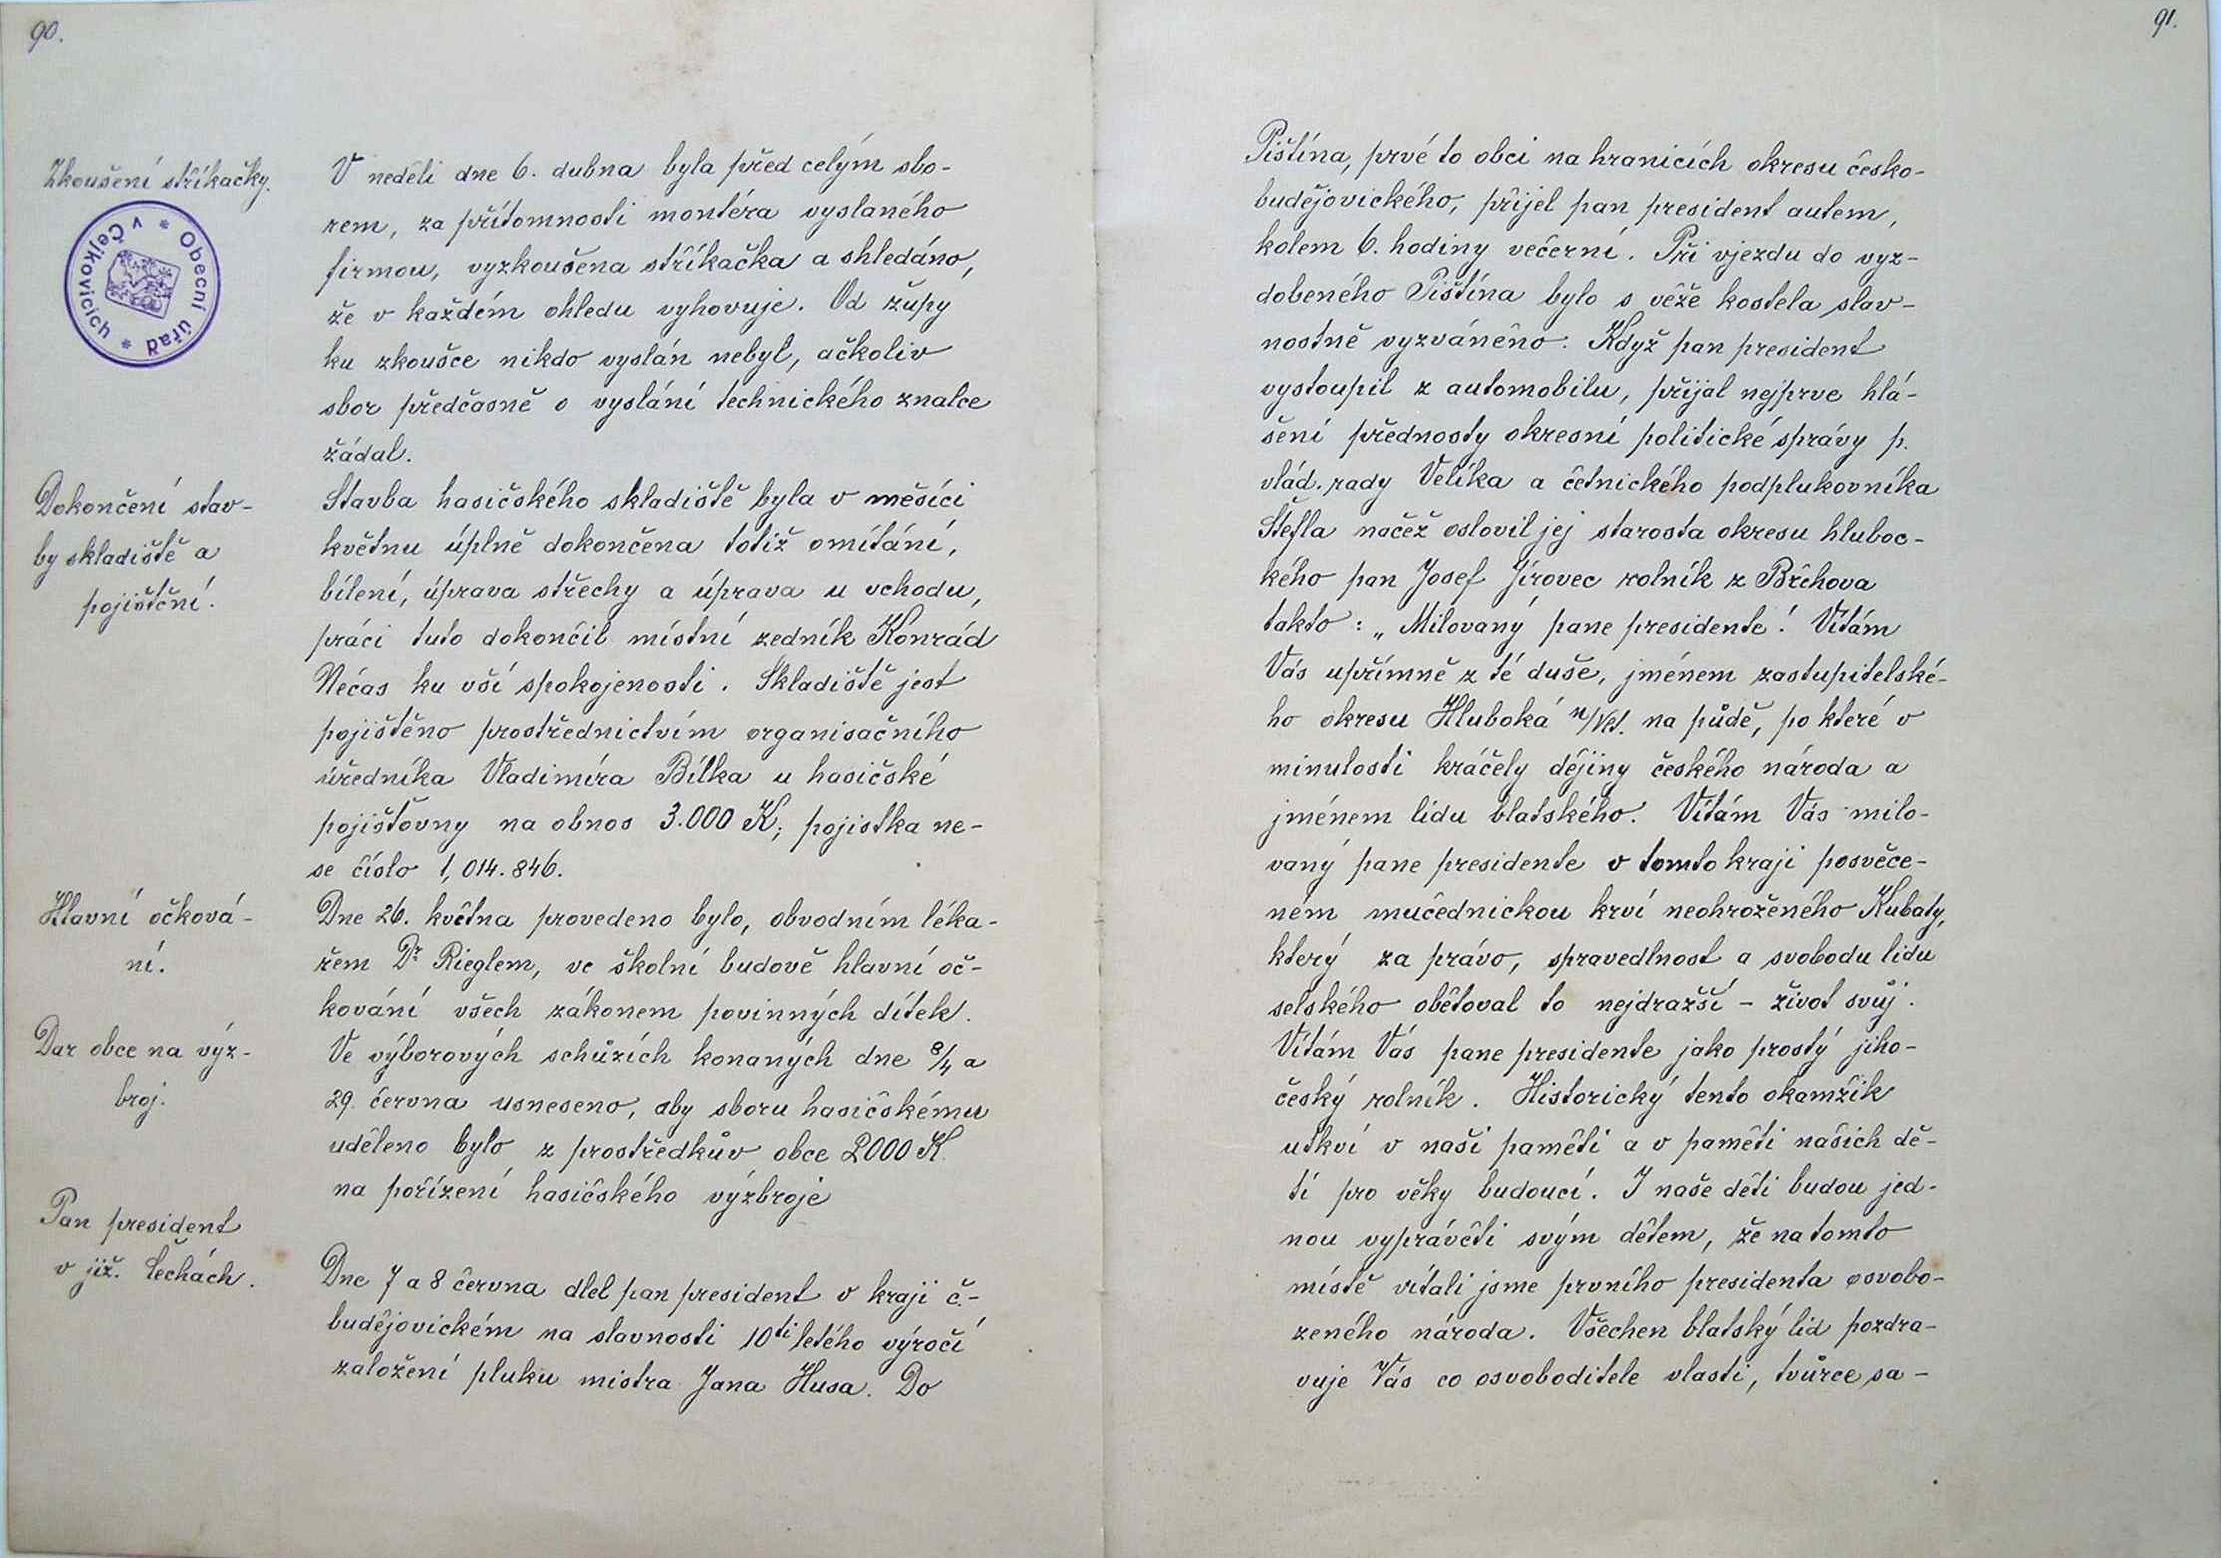 90.
Zkoušení stříkačky.
* Obecní úřad *
v Čejkovicích
V neděli dne 6. dubna byla před celým sbo-
rem, za přítomnosti montéra vyslaného
firmou, vyzkoušena stříkačka a shledáno,
že v každém ohledu vyhovuje. Od župy
ku zkoušce nikdo vyslán nebyl, ačkoliv
sbor předčasně o vyslání technického znalce
žádal.
Dokončení stav-
by skladiště a
pojištění.
Stavba hasičského skladiště byla v měsíci
květnu úplně dokončena totiž omítání,
bílení, úprava střechy a úprava u vchodu,
práci tuto dokončil místní zedník Konrád
Nečas ku vší spokojenosti. Skladiště jest
pojištěno prostřednictvím organisačního
úředníka Vladimíra Bílka u hasičské
pojišťovny na obnos 3.000 K; pojistka ne-
se číslo 1,014.846.
Hlavní očková-
ní.
Dne 26. května provedeno bylo, obvodním léka-
řem Dr Rieglem, ve školní budově hlavní oč-
kování všech zákonem povinných dítek.
Dar obce na výz-
broj.
Ve výborových schůzích konaných dne 8/4 a
29. června usneseno, aby sboru hasičskému
uděleno bylo z prostředkův obce 2000 K.
na pořízení hasičského výzbroje
Pan president
v již. Čechách.
Dne 7 a 8 června dlel pan president v kraji č.-
budějovickém na slavnosti 10ti letého výročí
založení pluku mistra Jana Husa. Do
91.
Pištína, prvé to obci na hranicích okresu česko-
budějovického, přijel pan president autem,
kolem 6. hodiny večerní. Při vjezdu do vyz-
dobeného Pištína bylo s věže kostela slav-
nostně vyzváněno. Když pan president
vystoupil z automobilu, přijal nejprve hlá-
šení přednosty okresní politické správy p.
vlád. rady Velíka a četnického podplukovníka
Štefla načež oslovil jej starosta okresu hluboc-
kého pan Josef Jírovec rolník z Břehova
takto: „Milovaný pane presidente! Vítám
Vás upřímně z té duše, jménem zastupitelské-
ho okresu Hluboká n/Vlt. na půdě, po které v
minulosti kráčely dějiny českého národa a
jménem lidu blatského. Vítám Vás milo-
vaný pane presidente v tomto kraji posvěce-
ném mučednickou krví neohroženého Kubaty,
který za právo, spravedlnost a svobodu lidu
selského obětoval to nejdražší – život svůj.
Vítám Vás pane presidente jako prostý jiho-
český rolník. Historický tento okamžik
utkví v naší paměti a v paměti našich dě-
tí pro věky budoucí. I naše děti budou jed-
nou vyprávěti svým dětem, že na tomto
místě vítali jsme prvního presidenta osvobo-
zeného národa. Všechen blatský lid pozdra-
vuje Vás co osvoboditele vlasti, tvůrce sa-